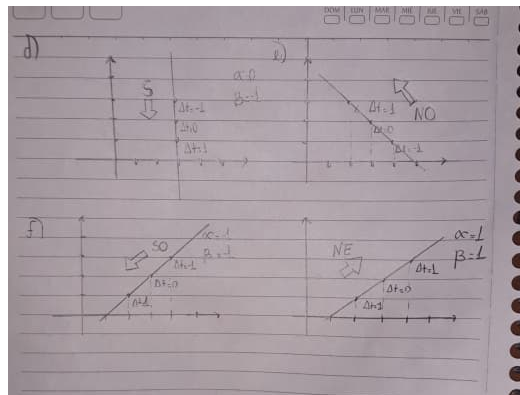 DOM LUN MAR MIE JUE VIE SAB
d)
S
α=0
β=-1
Δt=-1
Δt=0
Δt=1
e)
NO
Δt=1
Δt=0
Δt=-1
f)
SO
α=-1
β=-1
Δt=-1
Δt=0
Δt=1
NE
α=1
β=1
Δt=1
Δt=0
Δt=1